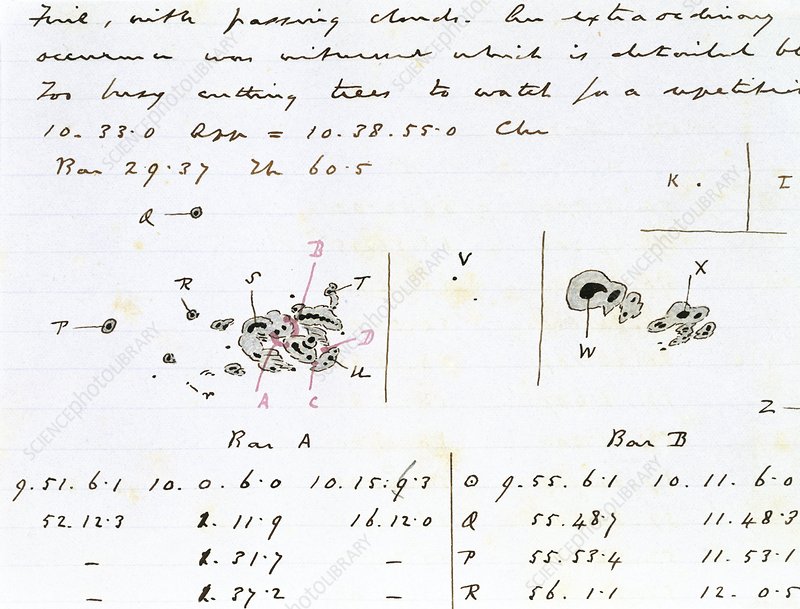 Fine, with passing clouds. An extraordinary
occurrence was witnessed which is detailed be
Too busy cutting trees to watch for a repetition
10. 33.0 App = 10.38.55.0
Bar 29.37 Th 60.5
K I
Q
B
V
X
R S T
P
D
W
U
r
A C
Z
Bar A Bar B
9.51. 6.1 10. 0. 6.0 10.15. 9.3 ⊙ 9.55. 6.1 10. 11. 6.0
52. 12.3 1. 11.9 16. 12.0 Q 55.48.7 11.48.3
– 1. 31.7 – P 55.53.4 11.53.1
– 1. 37.2 – R 56. 1.1 12. 0.5
SCIENCEphotoLIBRARY